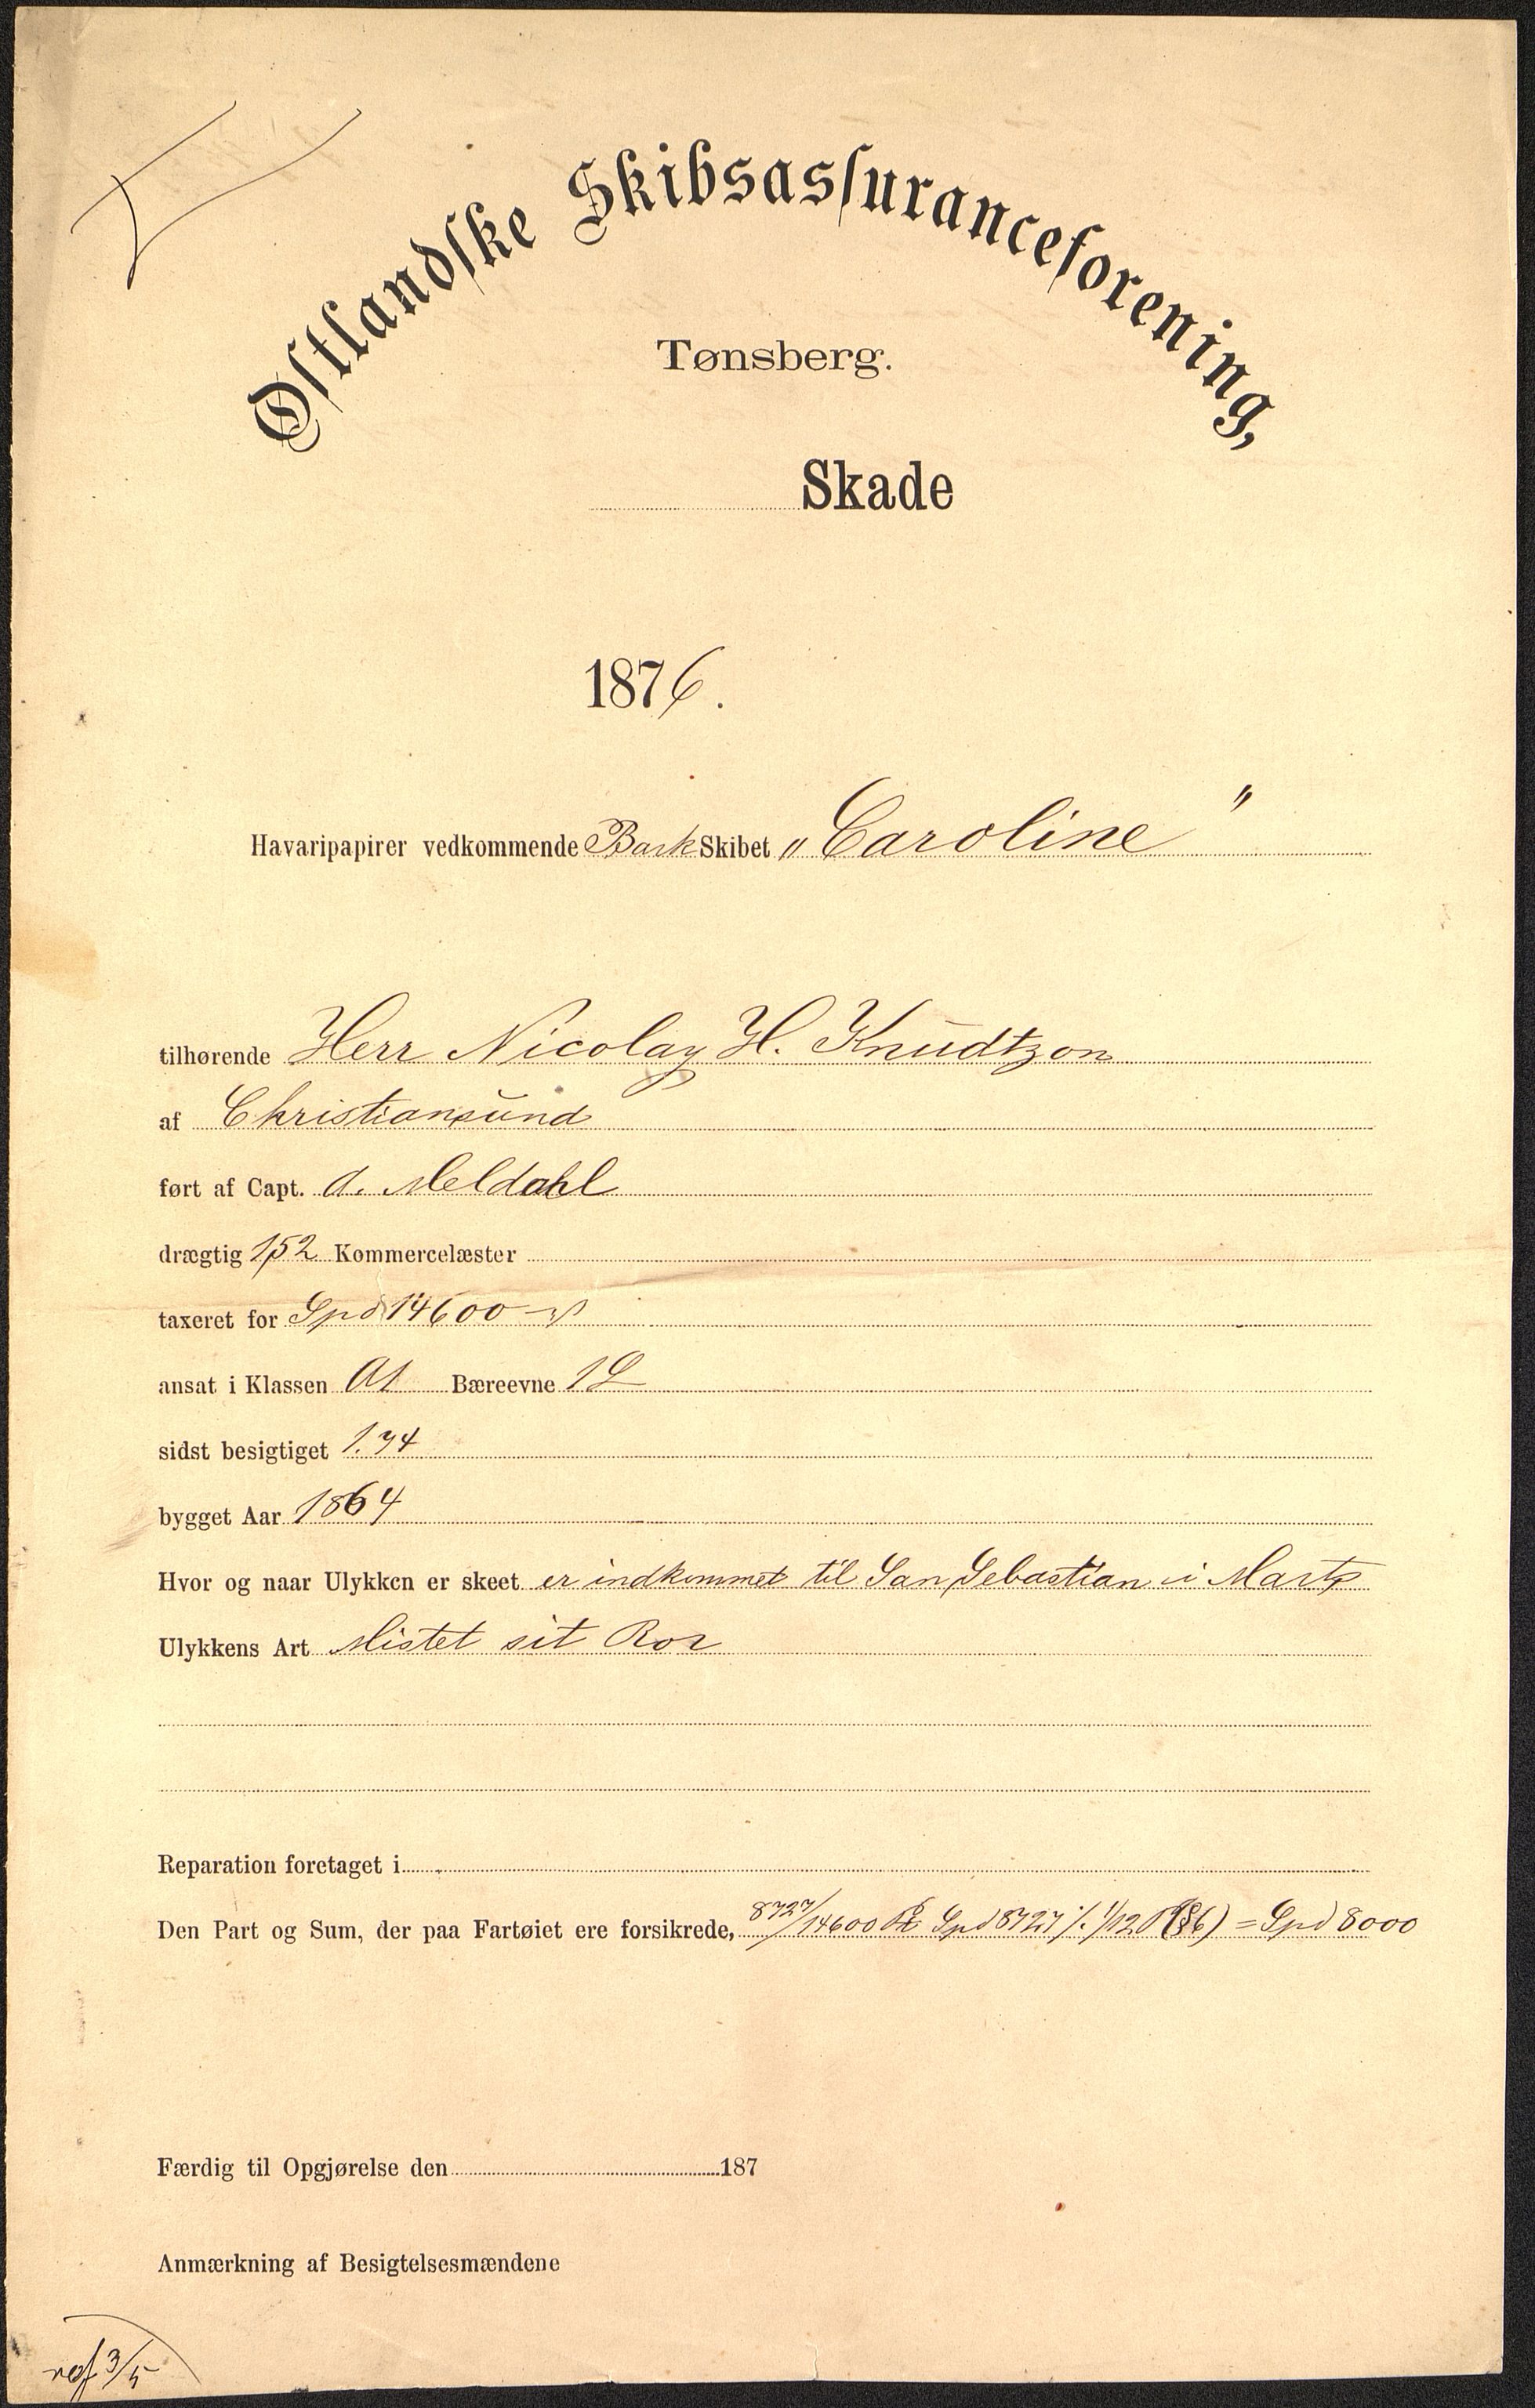 Østlandske Skibsassuranceforening,
Tønsberg.
Skade
1876.
Havaripapirer vedkommende Bark Skibet "Caroline"
tilhørende Herr Nicolay H. Knudtzon
af Christiansund
ført af Capt. A. Meldahl
drægtig 152 Kommercelæster
taxeret for Spd 14600
ansat i Klassen A1 Bæreevne 1L
sidst besigtiget 1.74
bygget Aar 1864
Hvor og naar Ulykken er skeet er indkommet til San Sebastian i Marts
Ulykkens Art Mistet sit Ror
Reparation foretaget i
Den Part og Sum, der paa Fartøiet ere forsikrede, 8727/14600 Spd 8727 ./. 1/12 (§6) = Spd 8000
Færdig til Opgjørelse den 187
Anmærkning af Besigtelsesmændene
3/5